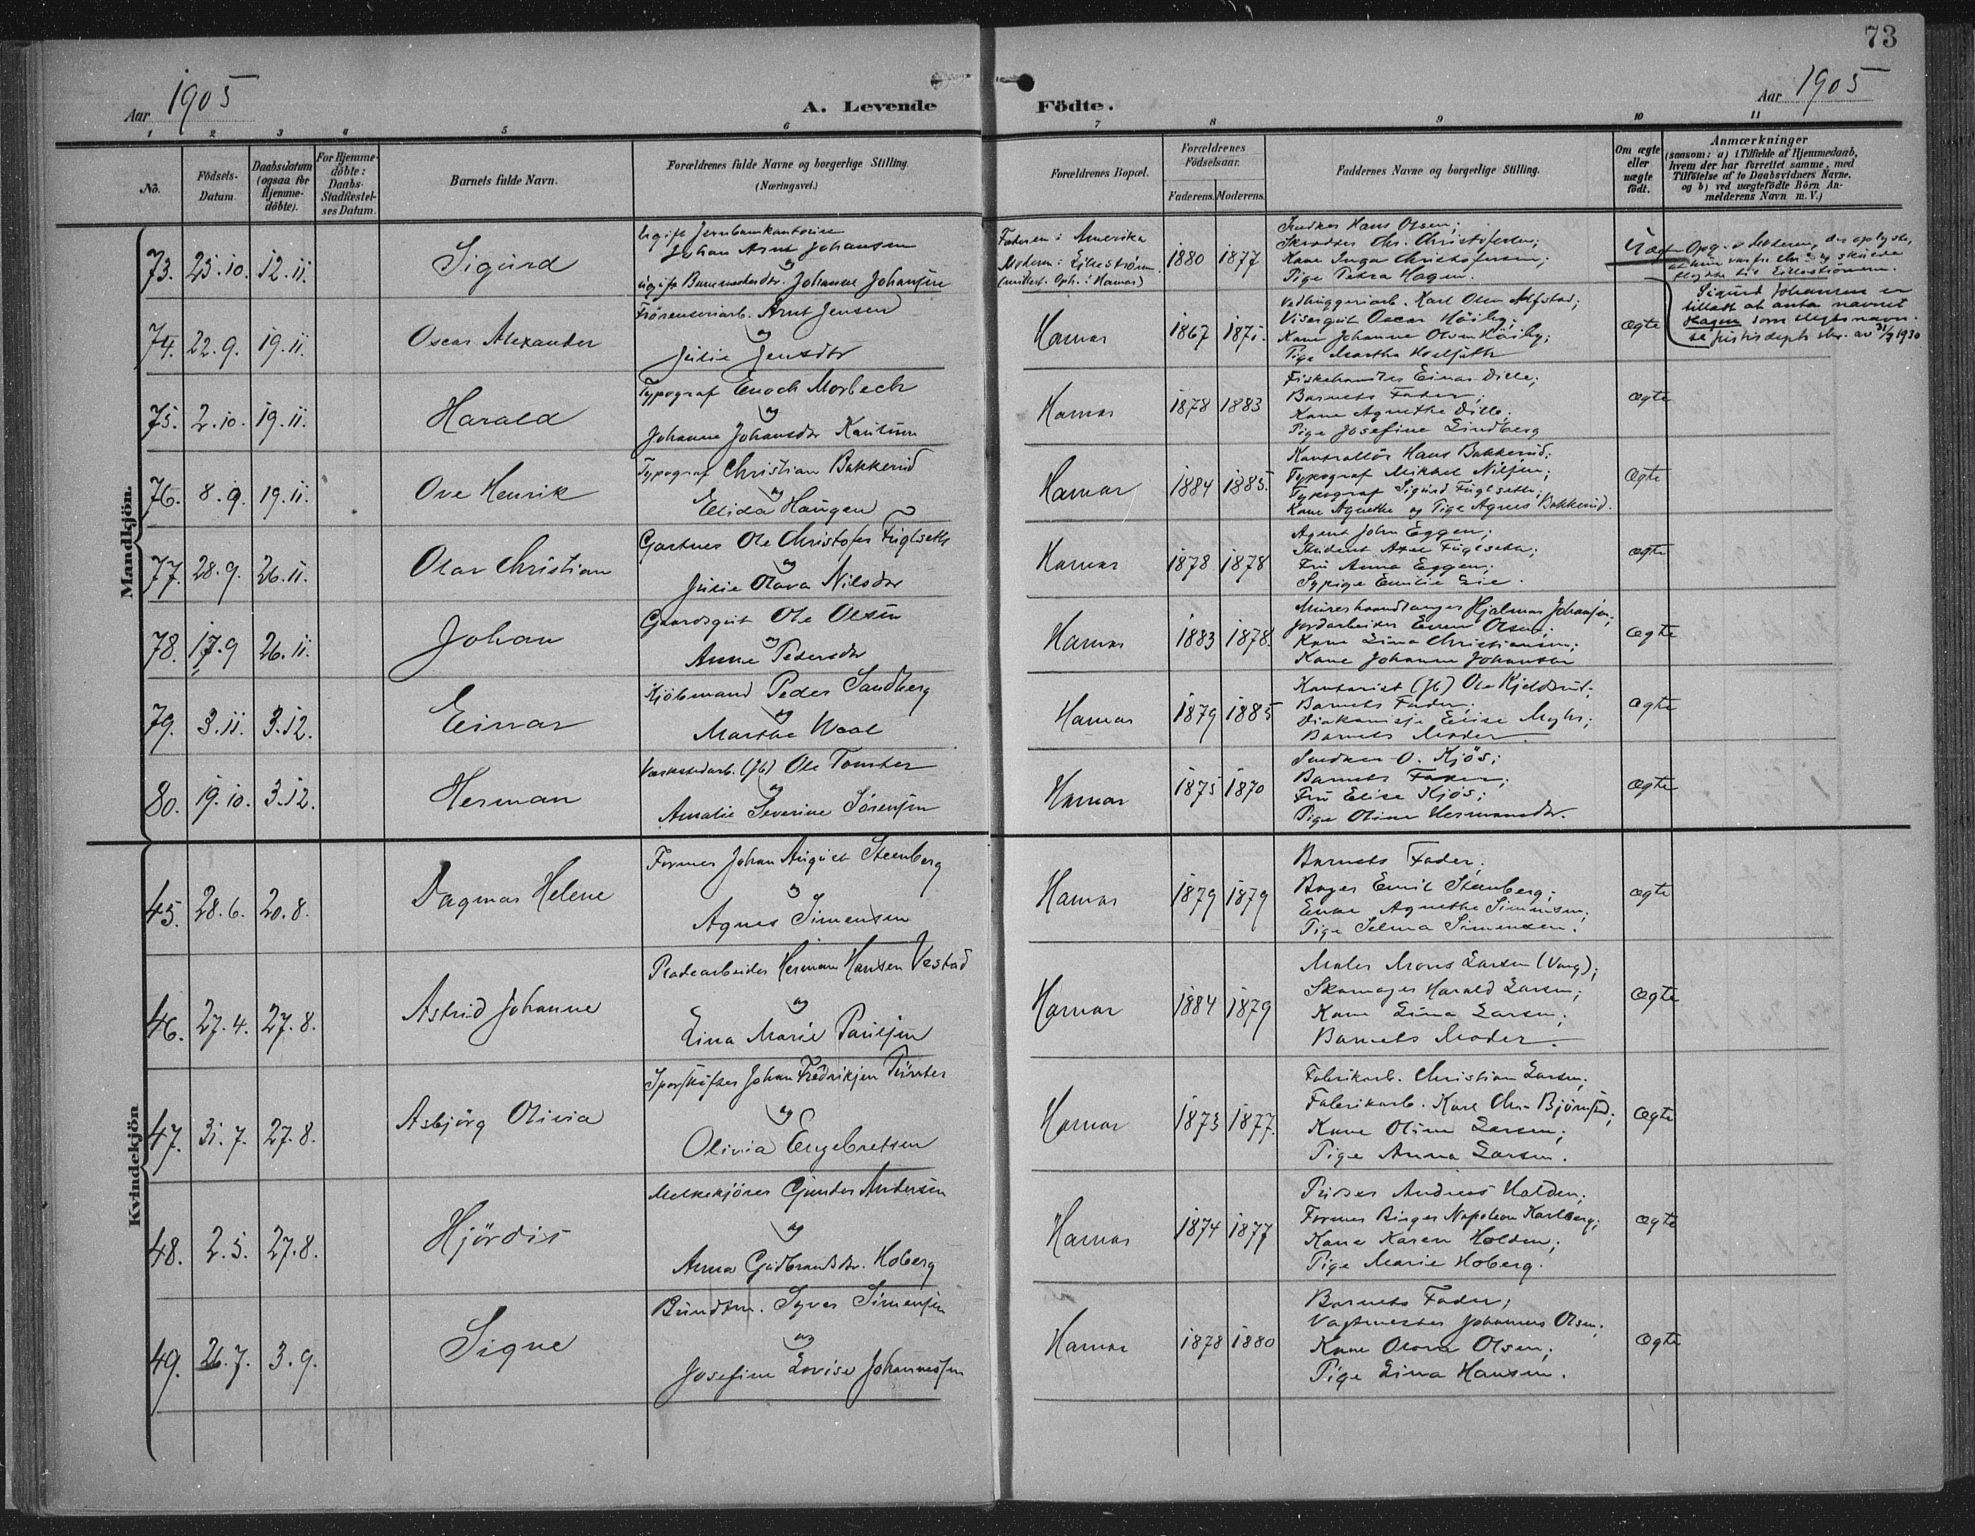 73
Aar 1905
A. Levende Födte.
Aar 1905
1 2 3 4 5 6 7 8 9 10 11
No.
Födsels-Datum.
Daabsdatum (ogsaa for Hjemme-döbte).
For Hjemme-döbte: Daabs-Stadfæstel-ses Datum.
Barnets fulde Navn.
Forældrenes fulde Navne og borgerlige Stilling. (Næringsvei.)
Forældrenes Bopæl.
Forældrenes Födselsaar.
Faderens. Moderens.
Faddernes Navne og borgerlige Stilling.
Om ægte eller uægte födt.
Anmærkninger
(saasom: a) i Tilfælde af Hjemmedaab, hvem der har forrettet samme, med Tilföielse af to Daabsvidners Navne, og b) ved uægtefödte Börn An-melderens Navn m. V.)
Mandkjön.
73. 25.10. 12.11. Sigurd
Ugift Jernbanekontorist
Johan Arnt Johansen
og
ugift Banemesterdtr. Johanne Johansen
Faderen i Amerika
Moderen i Lillestrømm
(midlert. oph. i Hamar)
1880 1877
Snedker Hans Olsen;
Skrædder Chr. Christofersen;
Kone Inga Christofersen;
Pige Petra Hagen.
Uægte
Opg. af Moderen, der oplyste,
Sigurd Johansen er
tilladt at anta navnet
Hagen som slegtsnavn.
se justisdepts skr. av 31/7 1930
74. 22.9. 19.11. Oscar Alexander
Arnt Jensen
og
Julie Jensdtr
Hamar 1867 1875.
Vedhuggeriarb. Karl Olsen Alfstad;
Visergut Oscar Höiby;
Kone Johanne Olsen Höiby;
Pige Martha
ægte
75. 2.10. 19.11. Harald
Typograf Enoch Morbech
og
Johanne Johansdtr
Hamar 1878 1883
Fiskehandler Einar Dille;
Barnets Fader;
Kone Agnethe Dille;
Pige Josefine Lindberg
ægte
76. 8.9. 19.11. Ove Henrik
Typograf Christian Bakkerud
og
Elida Haugen
Hamar 1884 1885.
Kontrollör Hans Bakkerud;
Typograf Mikkel Nilsen;
Typograf Sigurd Fuglseth;
Kone Agnethe og Pige Agnes Bakkerud.
ægte
77. 28.9. 26.11. Olav Christian
Gartner Ole Christofer Fuglseth
og
Julie Olava Nilsdtr
Hamar 1878 1878
Agent John Eggen;
Student Axel Fuglseth;
Fru Anna Eggen;
Sypige Emilie Lie.
ægte
78. 17.9 26.11. Johan
Gaardsgut Ole Olsen
og
Anne Pedersdtr
Hamar 1883 1878.
Murerhaandlanger Hjalmar Johansen;
Jordarbeider Even Olsen;
Kone Lina Christiansen;
Kone Johanne Johansen
ægte
79. 3.11. 3.12. Einar
Kjöbmand Peder Sandberg
og
Marthe Waal
Hamar 1879 1885
Kontorist (Jb) Ole Kjeldsrud;
Barnets Fader;
Diakonisse Elise Myhr;
Barnets Moder
ægte
80. 19.10. 3.12. Herman
Værkstedarb. (Jb) Ole Tomter
og
Amalie Severine Sörensen
Hamar 1875 1870
Snedker O. Kjös;
Barnets Fader;
Fru Elise Kjös;
Pige Oline Hermansdtr.
ægte
Kvindekjön
45. 28.6. 20.8. Dagmar Helene
Former Johan August Steenberg
og
Agnes Simensen
Hamar 1879 1879
Barnets Fader;
Bager Emil Steenberg;
Enke Agnethe Simensen;
Pige Selma Simensen.
ægte
46. 27.4. 27.8. Astrid Johanne
Pladearbeider Herman Hansen Vestad
og
Lina Marie Paulsen
Hamar 1884 1879
Maler Mons Larsen (Vang);
Skomager Harald Larsen;
Kone Lina Larsen;
Barnets Moder.
ægte
47. 31.7. 27.8. Asbjörg Olivia
Sporskifter Johan Fredriksen
og
Olivia Engebretsen
Hamar 1873 1877.
Fabrikarb. Christian Larsen;
Fabrikarb. Karl Chr. Björnstad;
Kone Oline Larsen;
Pige Anna Larsen.
ægte
48. 2.5. 27.8. Hjördis
Melkekjörer Gunder Andersen
og
Anna Gudbrandsdtr. Hoberg
Hamar 1874 1877
Pudser Andreas Holden;
Former Birger Napoleon Karlberg;
Kone Karen Holden;
Pige Marie Hoberg.
ægte
49. 26.7. 3.9. Signe
Bundtm. Syver Simensen
og
Josefine Lovise Johannessen
Hamar 1878 1880
Barnets Fader;
Vagtmester Johannes Olsen;
Kone Olava Olsen;
Pige Lina Hansen.
ægte